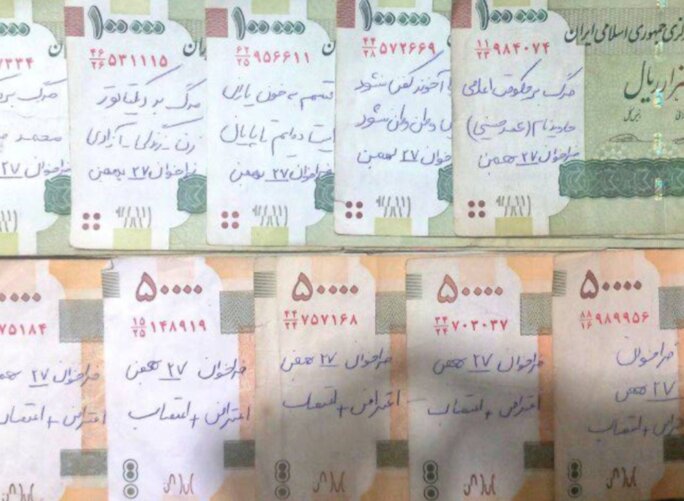 ۱۰۰۰۰۰
۷۳۳۴
مرگ بر
محمد
فراخوان ۲۷
۱۰۰۰۰۰
۴۶/۲۶ ۵۳۱۱۱۵
مرگ بر دیکتاتور
زن زندگی آزادی
فراخوان ۲۷ بهمن
۱۰۰۰۰۰
۶۲/۲۵ ۹۵۶۶۱۱
قسم به خون یاران
ایستاده‌ایم تا پایان
فراخوان ۲۷ بهمن
۱۰۰۰۰۰
۴۴/۲۸ ۵۷۲۶۶۹
تا آخوند کفن نشود
این وطن وطن نشود
فراخوان ۲۷ بهمن
۱۰۰۰۰۰
۱۱/۲۳ ۹۸۴۰۷۴
مرکزی جمهوری اسلامی ایران
هزار ریال
مرگ بر حکومت اعدامی
جاویدنام (محمد حسینی)
فراخوان ۲۷ بهمن
۷۵۱۸۴
فراخوان ۲۷ بهمن
اعتراض + اعتصاب
۵۰۰۰۰
۱۵/۲۵ ۱۴۸۹۱۹
فراخوان ۲۷ بهمن
اعتراض + اعتصاب
۵۰۰۰۰
۴۴/۲۴ ۷۵۷۱۶۸
فراخوان ۲۷ بهمن
اعتراض + اعتصاب
۵۰۰۰۰
۳۴/۲۴ ۷۰۳۰۳۷
فراخوان ۲۷ بهمن
اعتراض + اعتصاب
۵۰۰۰۰
۸۸/۱۶ ۹۸۹۹۵۶
فراخوان
۲۷ بهمن
اعتراض + اعتصاب